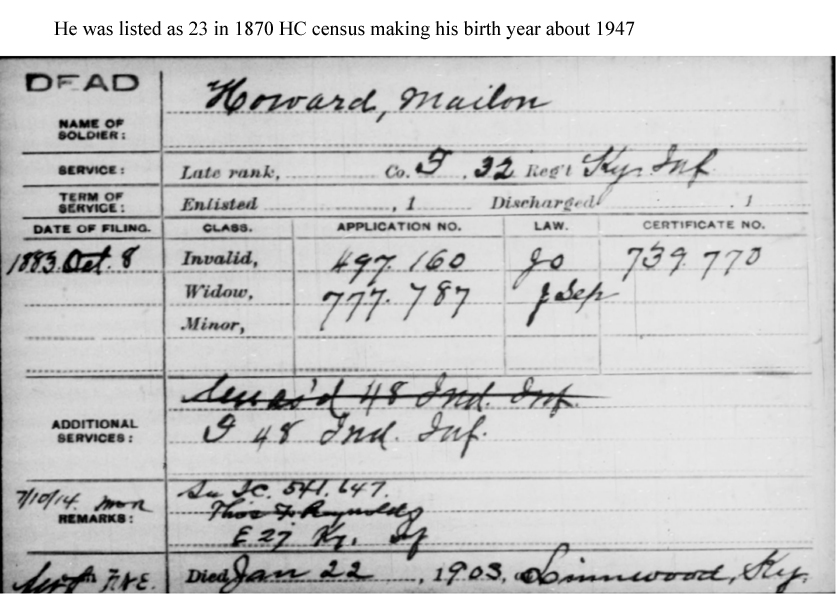 He was listed as 23 in 1870 HC census making his birth year about 1947
DEAD
NAME OF SOLDIER:
Howard, Mailon
SERVICE:
Late rank, Co. F, 32 Reg't Ky. Inf
TERM OF SERVICE:
Enlisted , 1 Discharged , 1
DATE OF FILING. CLASS. APPLICATION NO. LAW. CERTIFICATE NO.
1883. Oct. 8 Invalid, 497.160 739.770
Widow, 777.787
Minor,
48 Ind. Inf.
ADDITIONAL SERVICES:
48 Ind. Inf.
7/10/14.
REMARKS:
541.647.
Thos F. Reynolds
E 27 Ky. Inf
Died Jan 22, 1903, Linnwood, Ky.